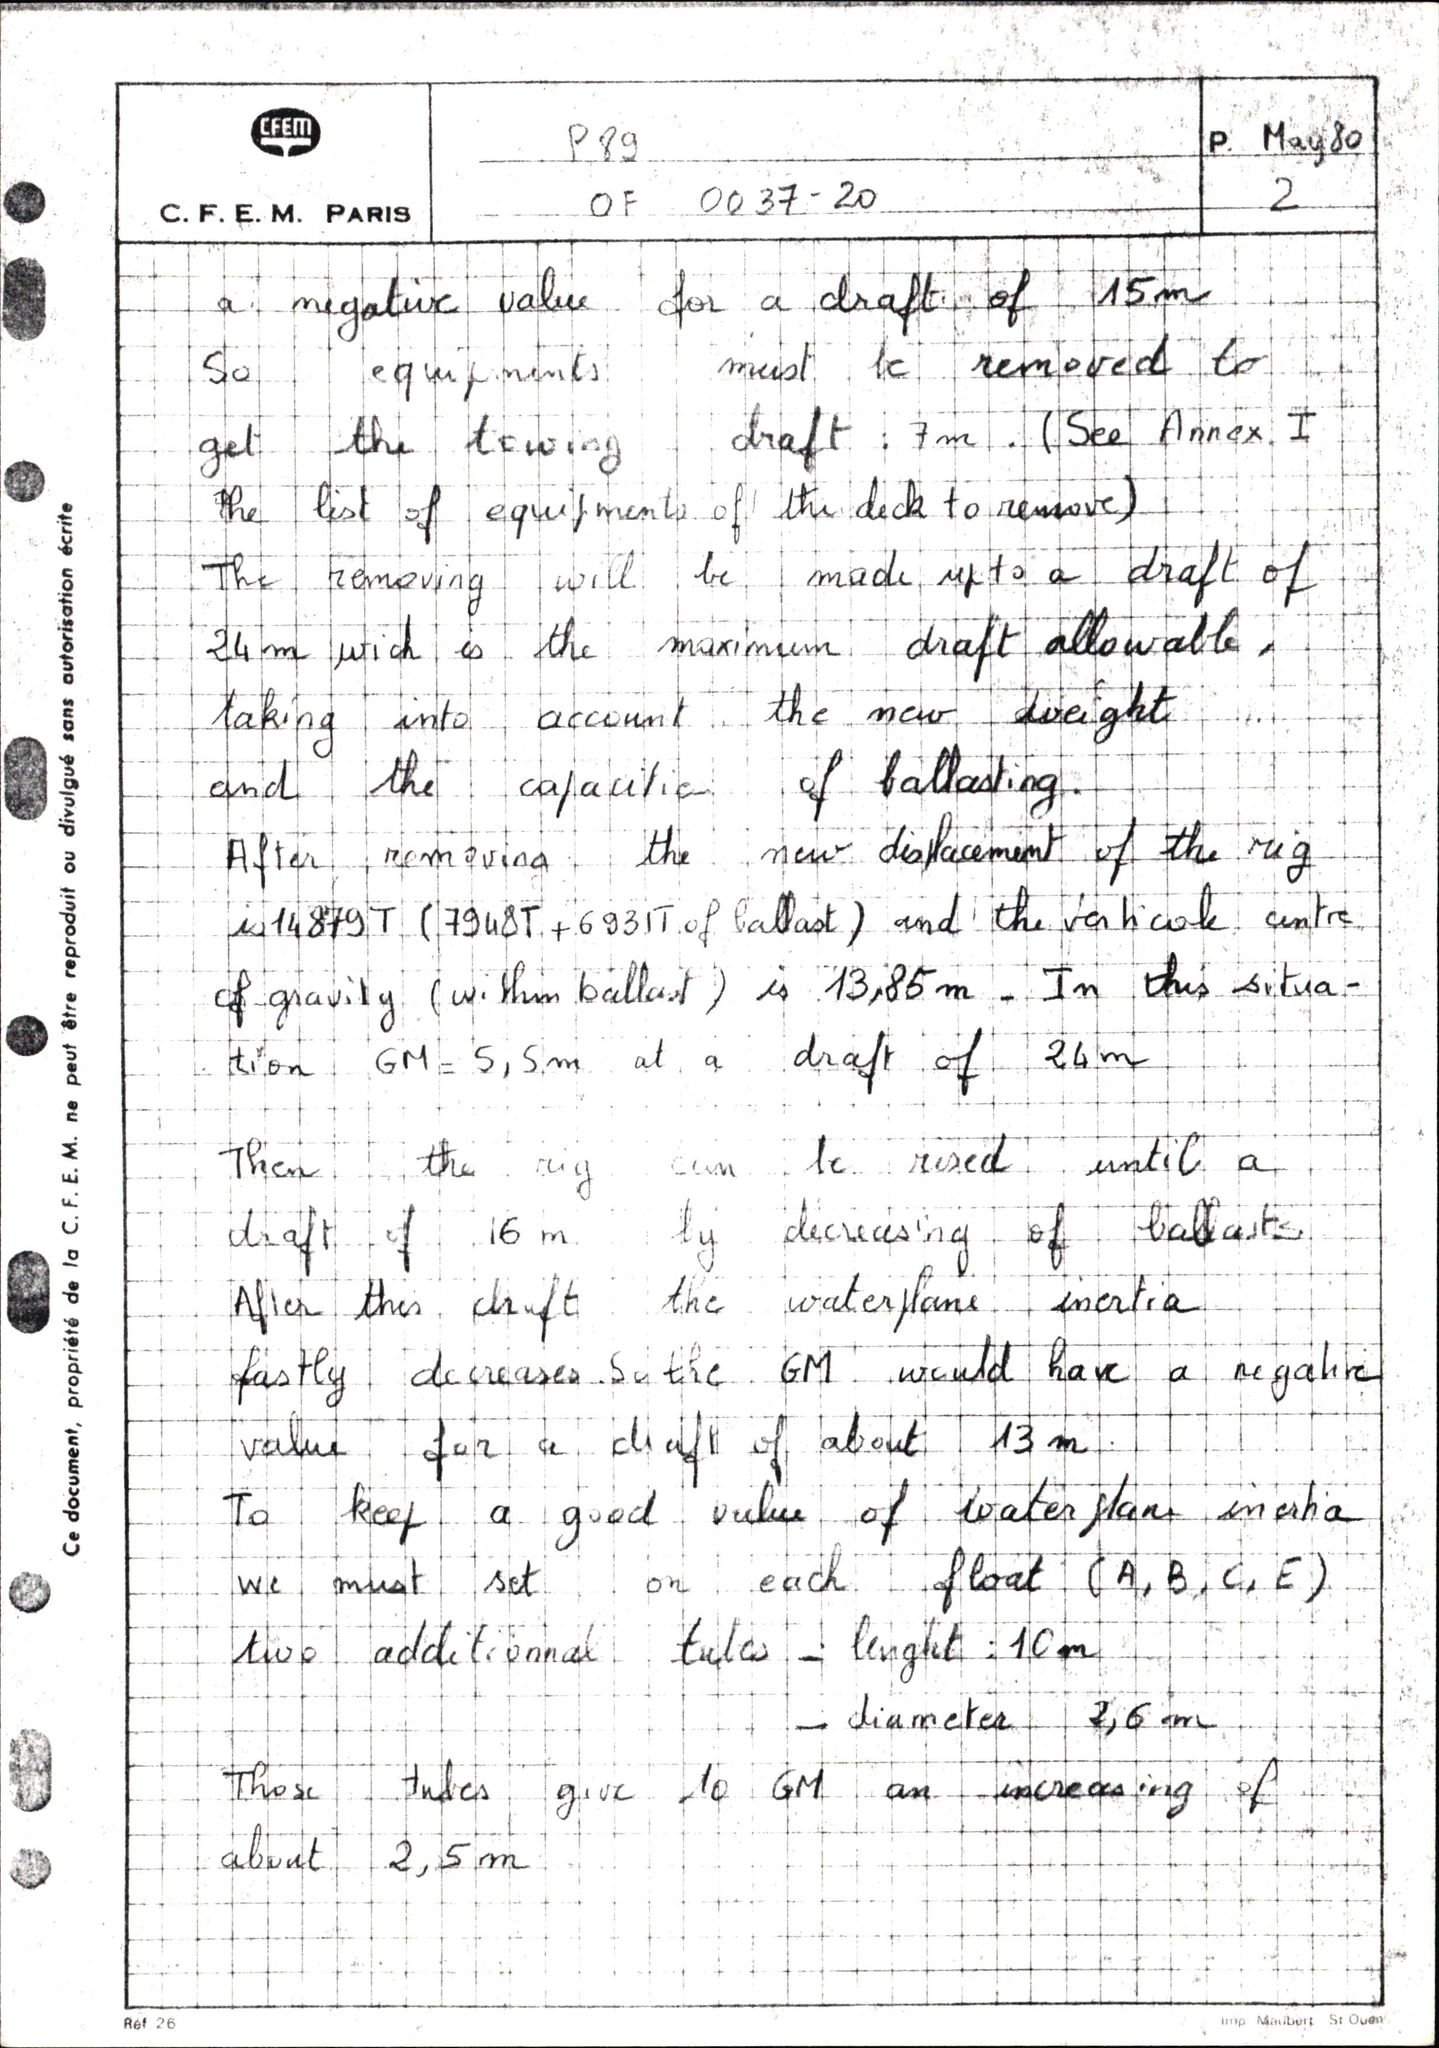 CFEM
C. F. E. M. PARIS
P 89
OF 0037-20
P. May 80
2
a negative value for a draft of 15m
So equipments must be removed to
get the towing draft : 7m. (See Annex I
the list of equipments of the deck to remove)
The removing will be made up to a draft of
24m wich is the maximum draft allowable,
taking into account the new weight
and the capacitie of ballasting.
After removing the new displacement of the rig
is 14879T (7948T + 6931T of ballast) and the verticale centre
of gravity (within ballast) is 13,85m - In this situa-
tion GM = 5,5m at a draft of 24m
Then the rig can be rised until a
draft of 16m by decreasing of ballasts
After this draft the waterplane inertia
fastly decreases. So the GM would have a negative
value for a draft of about 13m.
To keep a good value of waterplane inertia
we must set on each float (A, B, C, E)
two additionnal tubes - lenght : 10m
- diameter 2,6m
Those tubes give to GM an increasing of
about 2,5m
Ce document, propriété de la C. F. E. M. ne peut être reproduit ou divulgué sans autorisation écrite
Réf. 26
Imp. Maubert St Ouen